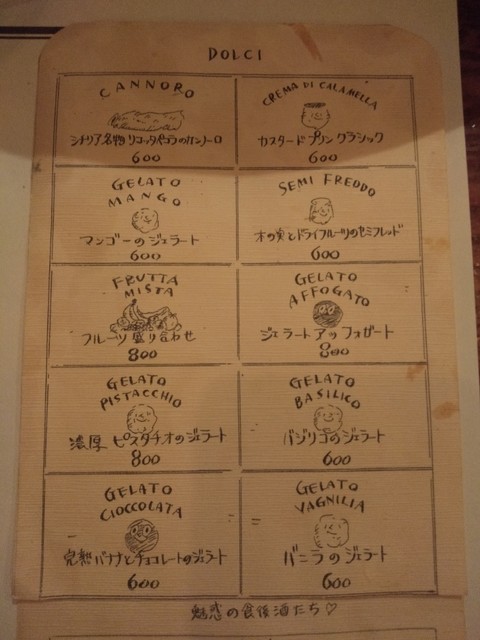 DOLCI
CANNORO
シチリア名物 リコッタペコラのカンノーロ
600
CREMA DI CALAMELLA
カスタードプリン クラシック
600
GELATO
MANGO
マンゴーのジェラート
600
SEMI FREDDO
木の実とドライフルーツのセミフレッド
600
FRUTTA
MISTA
フルーツ盛り合わせ
800
GELATO
AFFOGATO
ジェラート アッフォガート
800
GELATO
PISTACCHIO
濃厚 ピスタチオのジェラート
800
GELATO
BASILICO
バジリコのジェラート
600
GELATO
CIOCCOLATA
完熟バナナとチョコレートのジェラート
600
GELATO
VAGNILIA
バニラのジェラート
600
魅惑の食後酒たち♡